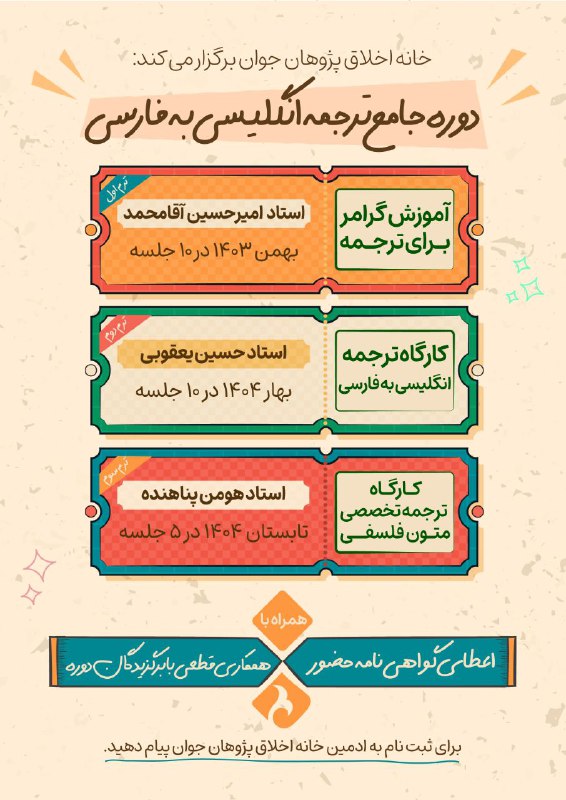 خانه اخلاق پژوهان جوان برگزار می کند:
دوره جامع ترجمه انگلیسی به فارسی
ترم اول
آموزش گرامر
برای ترجمه
استاد امیرحسین آقامحمد
بهمن ۱۴۰۳ در ۱۰ جلسه
ترم دوم
کارگاه ترجمه
انگلیسی به فارسی
استاد حسین یعقوبی
بهار ۱۴۰۴ در ۱۰ جلسه
ترم سوم
کارگاه
ترجمه تخصصی
متون فلسفی
استاد هومن پناهنده
تابستان ۱۴۰۴ در ۵ جلسه
همراه با
اعطای گواهی نامه حضور
همکاری قطعی با برگزیدگان دوره
برای ثبت نام به ادمین خانه اخلاق پژوهان جوان پیام دهید.